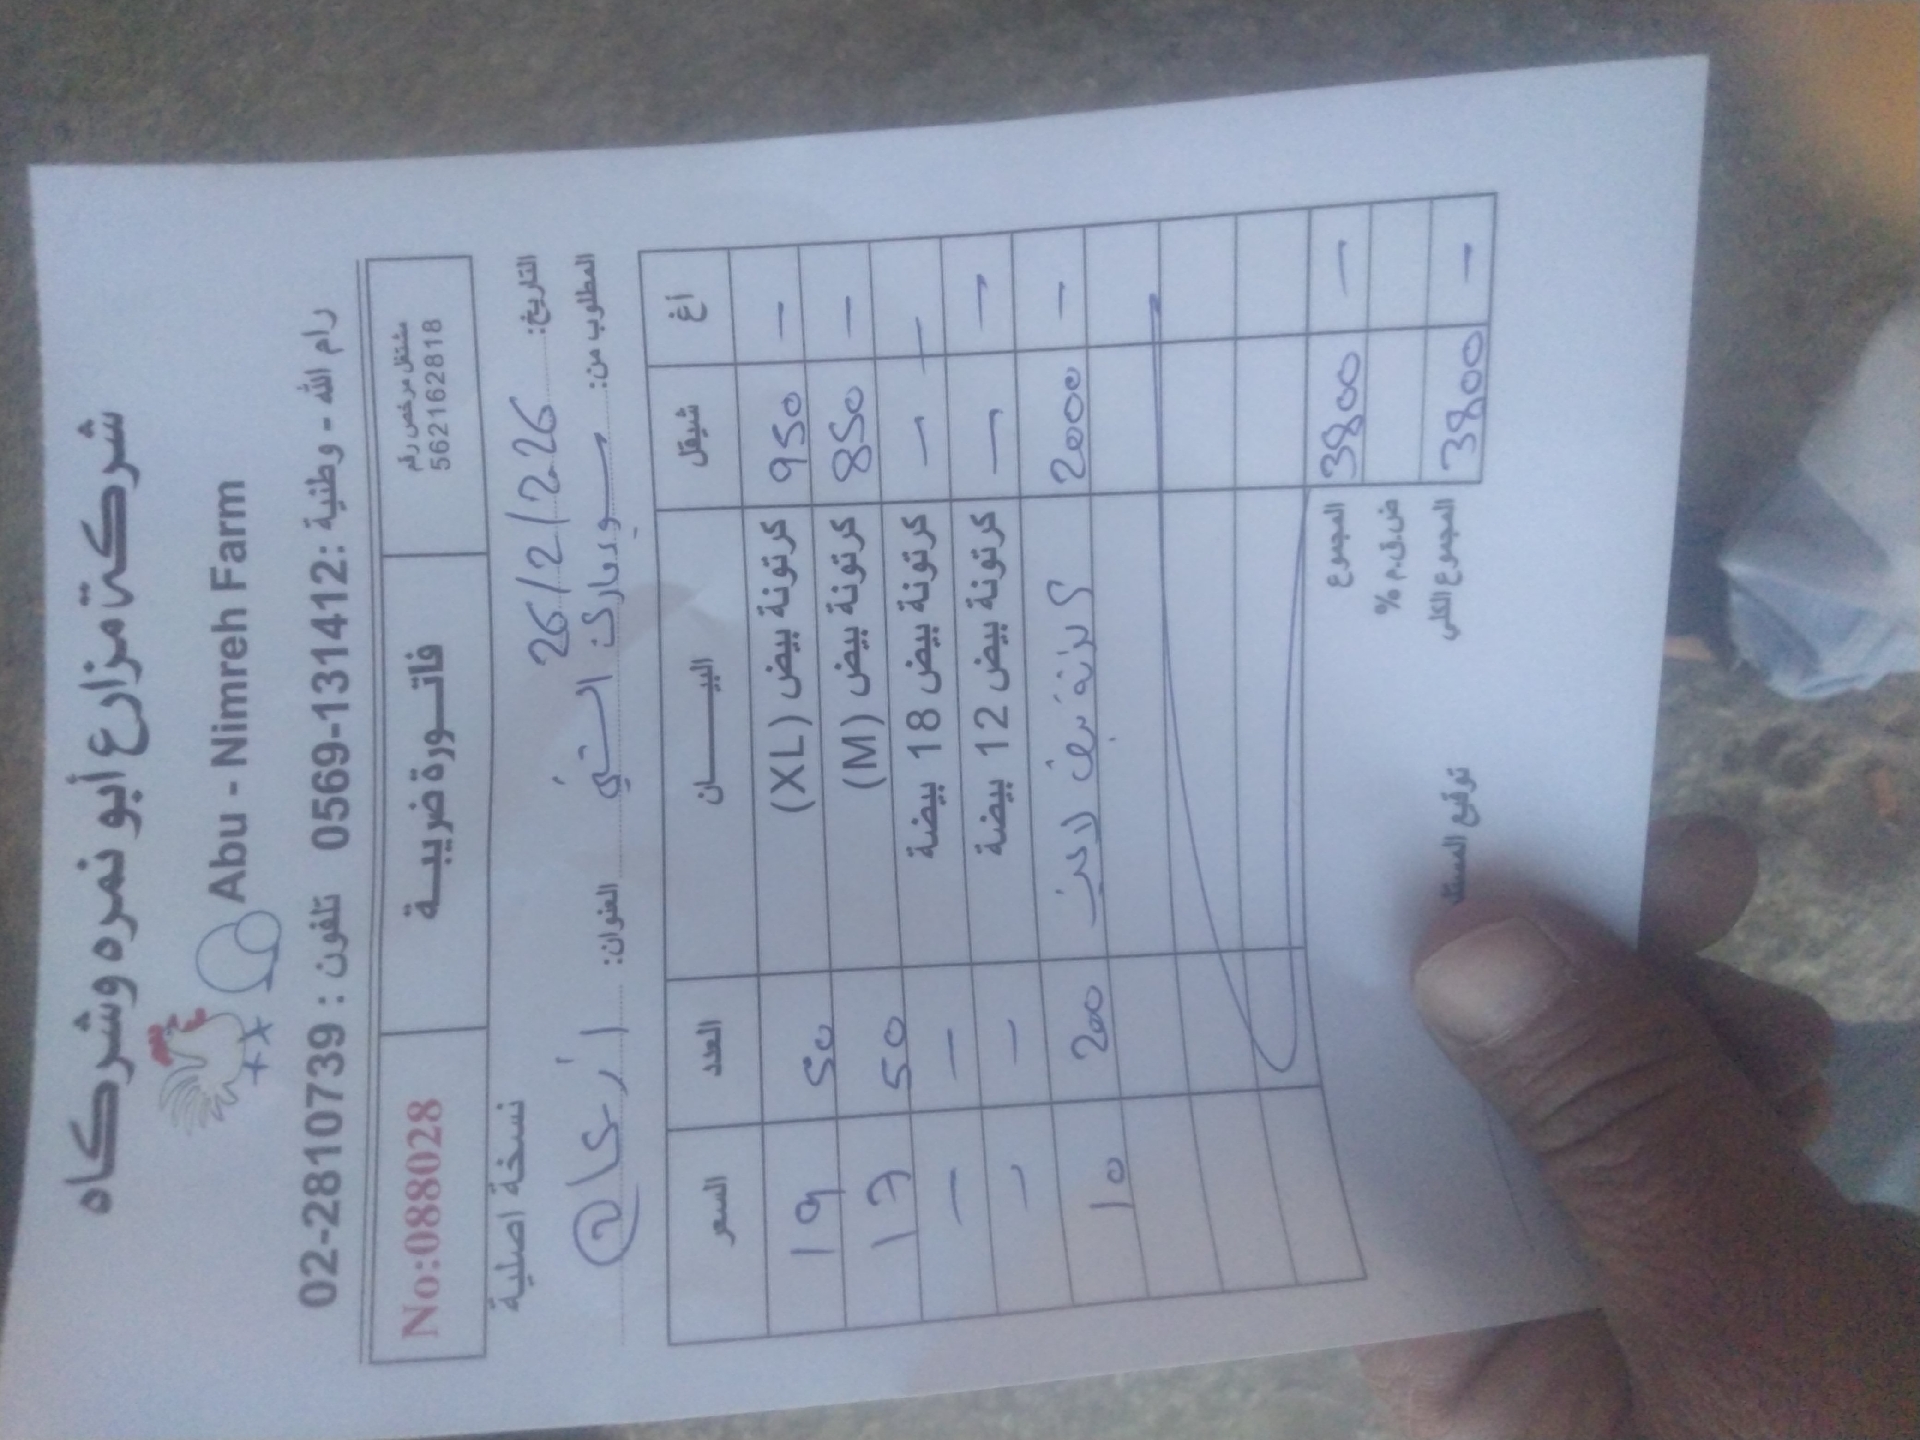 شركة مزارع أبو نمره وشركاه
Abu - Nimreh Farm
رام الله - وطنية: 0569-131412 تلفون: 02-2810739
مشتغل مرخص رقم
562162818
فاتـورة ضريبـة
No:088028
التاريخ: 26/2/2026
نسخة اصلية
المطلوب من: سوبر ماركت العنوان:
أغ شيقل البيـــان العدد السعر
— 950 كرتونة بيض (XL) 50 19
— 850 كرتونة بيض (M) 50 17
— — كرتونة بيض 18 بيضة — —
— — كرتونة بيض 12 بيضة — —
— 2000 كرتونة بيض 200 10
— 3800 المجموع
ض.ق.م %
— 3800 المجموع الكلي
توقيع